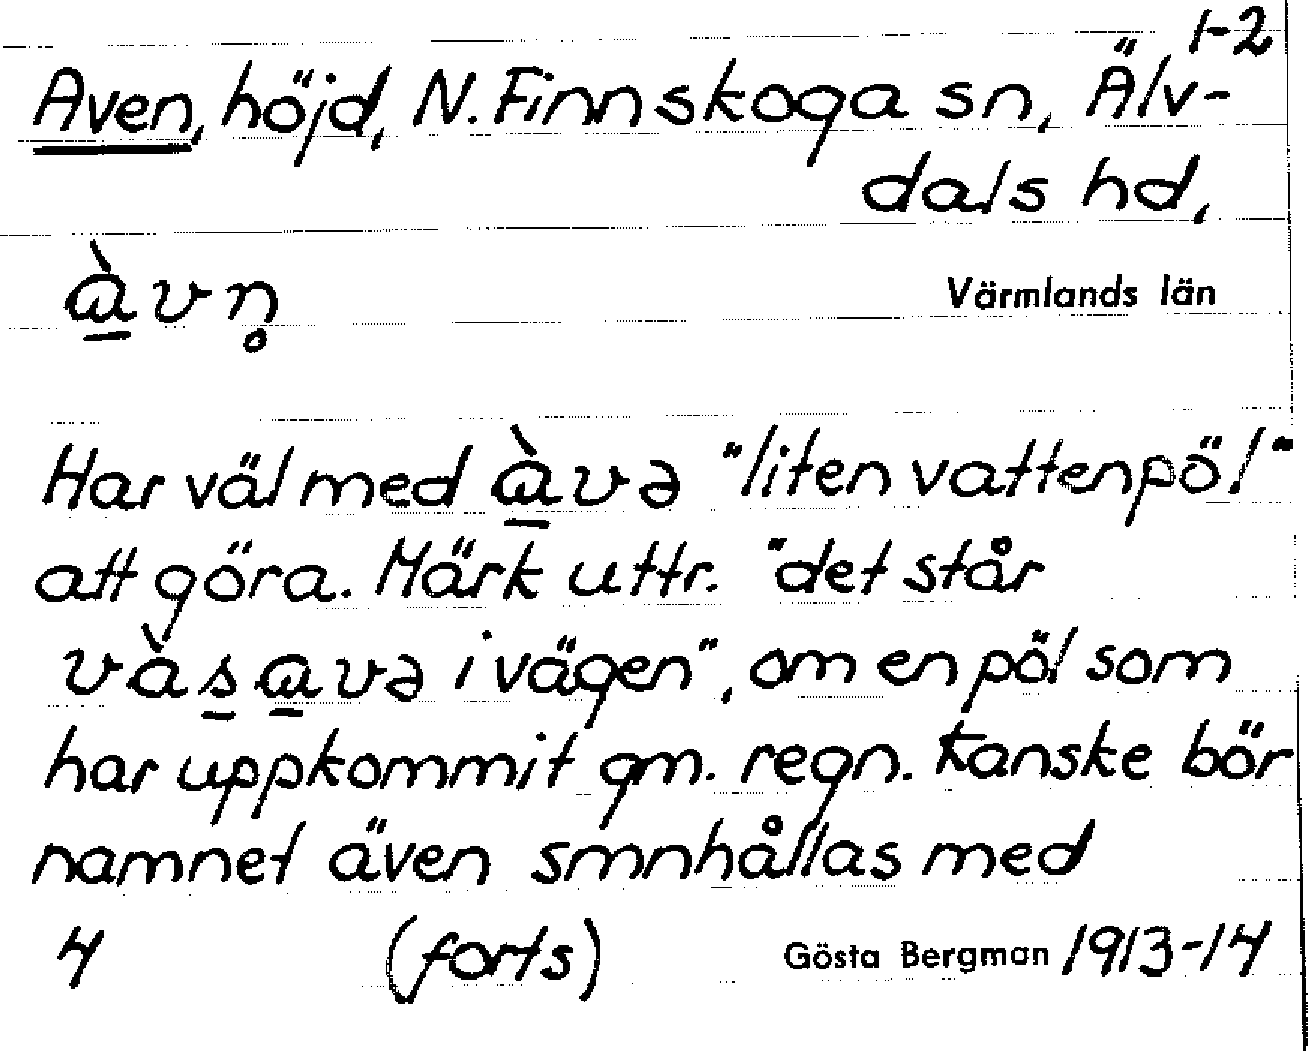 1-2
Aven, höjd, N. Finnskoga sn, Älv-
dals hd,
àvn̥
Värmlands län
Har väl med àvə "liten vattenpöl"
att göra. Märk uttr. "det står
vàsavə i vägen", om en pöl som
har uppkommit gm. regn. Kanske bör
namnet även smnhållas med
4 (forts) Gösta Bergman 1913-14